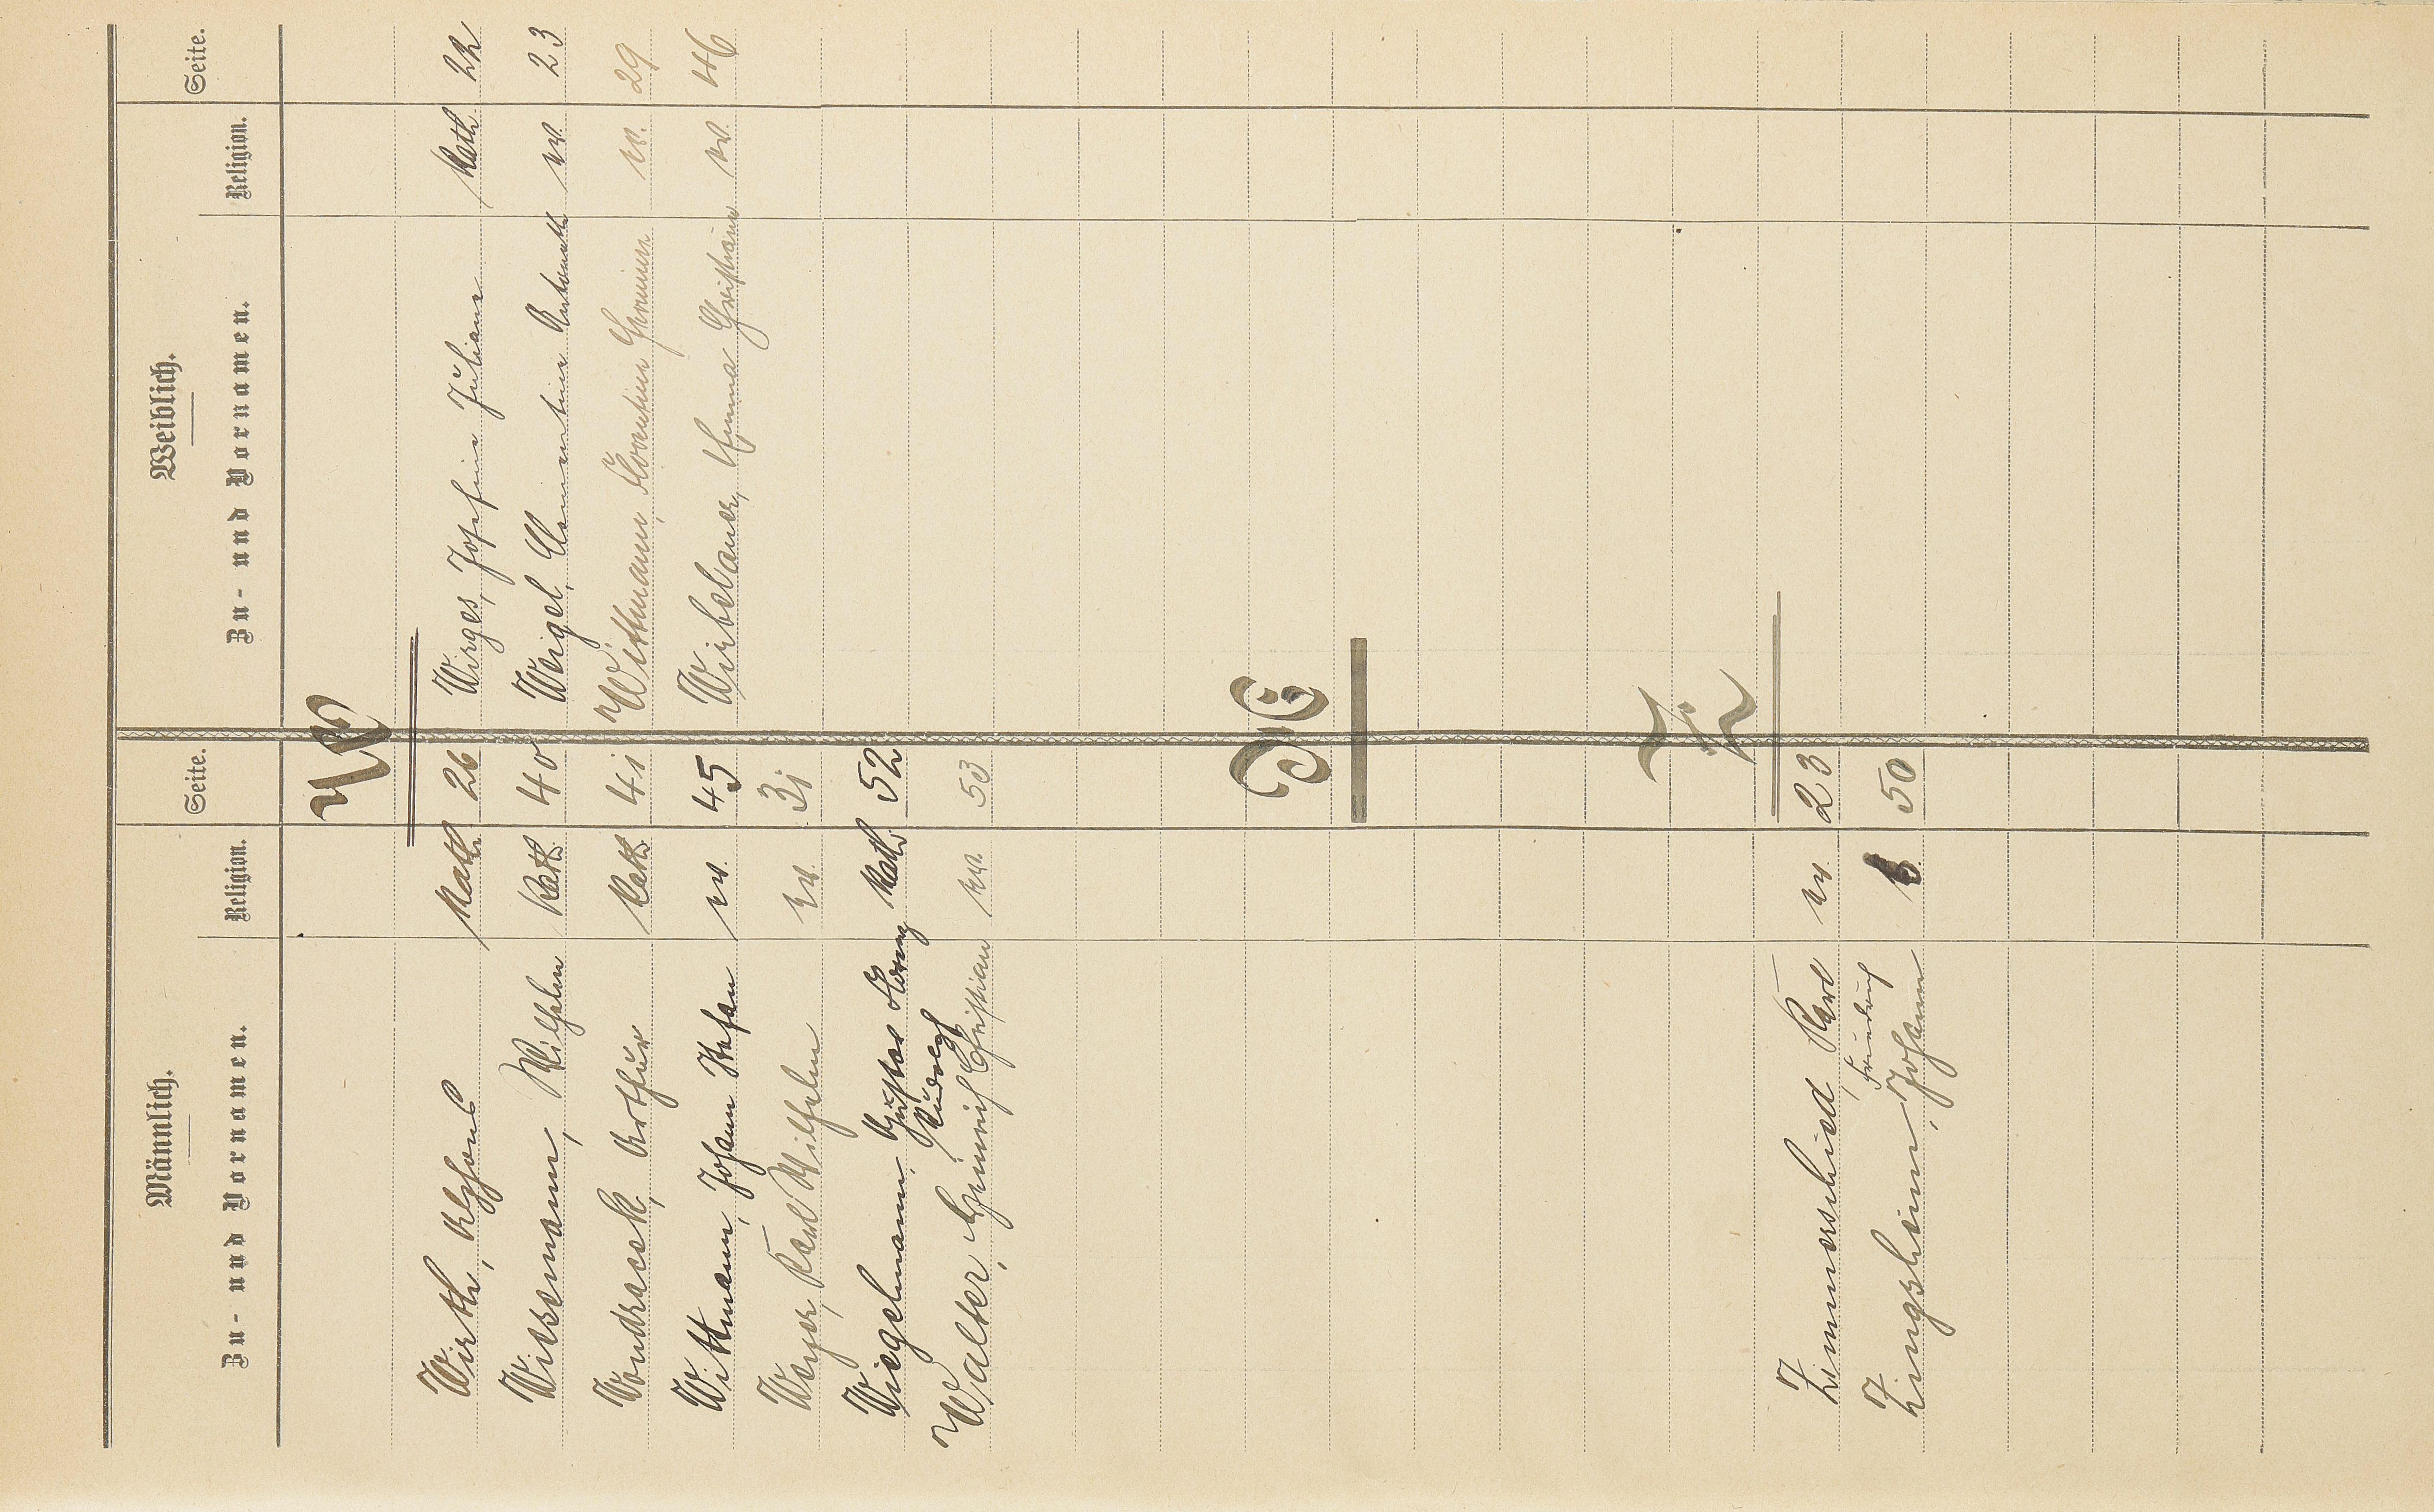 Männlich. Weiblich.
Zu- und Vornamen. Religion. Seite. Zu- und Vornamen. Religion. Seite.
W
Wirth, Alfons kath 26 Wirges, Josefine Juliane kath. 22
Wissemann, Wilhelm kath. 40 Weigel, Clementine Antonette ev. 23
Wondracek, Arthur kath. 41 Wittmann, Florentine Hermine ev. 29
Wittmann, Johann Stefan ev. 45 Wirbelauer, Emma Christiane ev. 46
Weyer, Karl Wilhelm ev. 31
Wiegelmann, Gustav Lorenz Rudolf kath. 52
Walter, Heinrich Christian ev. 53
Z
Zimmerschied, Karl ev. 23
Friedrich
Zingsheim, Johann 50